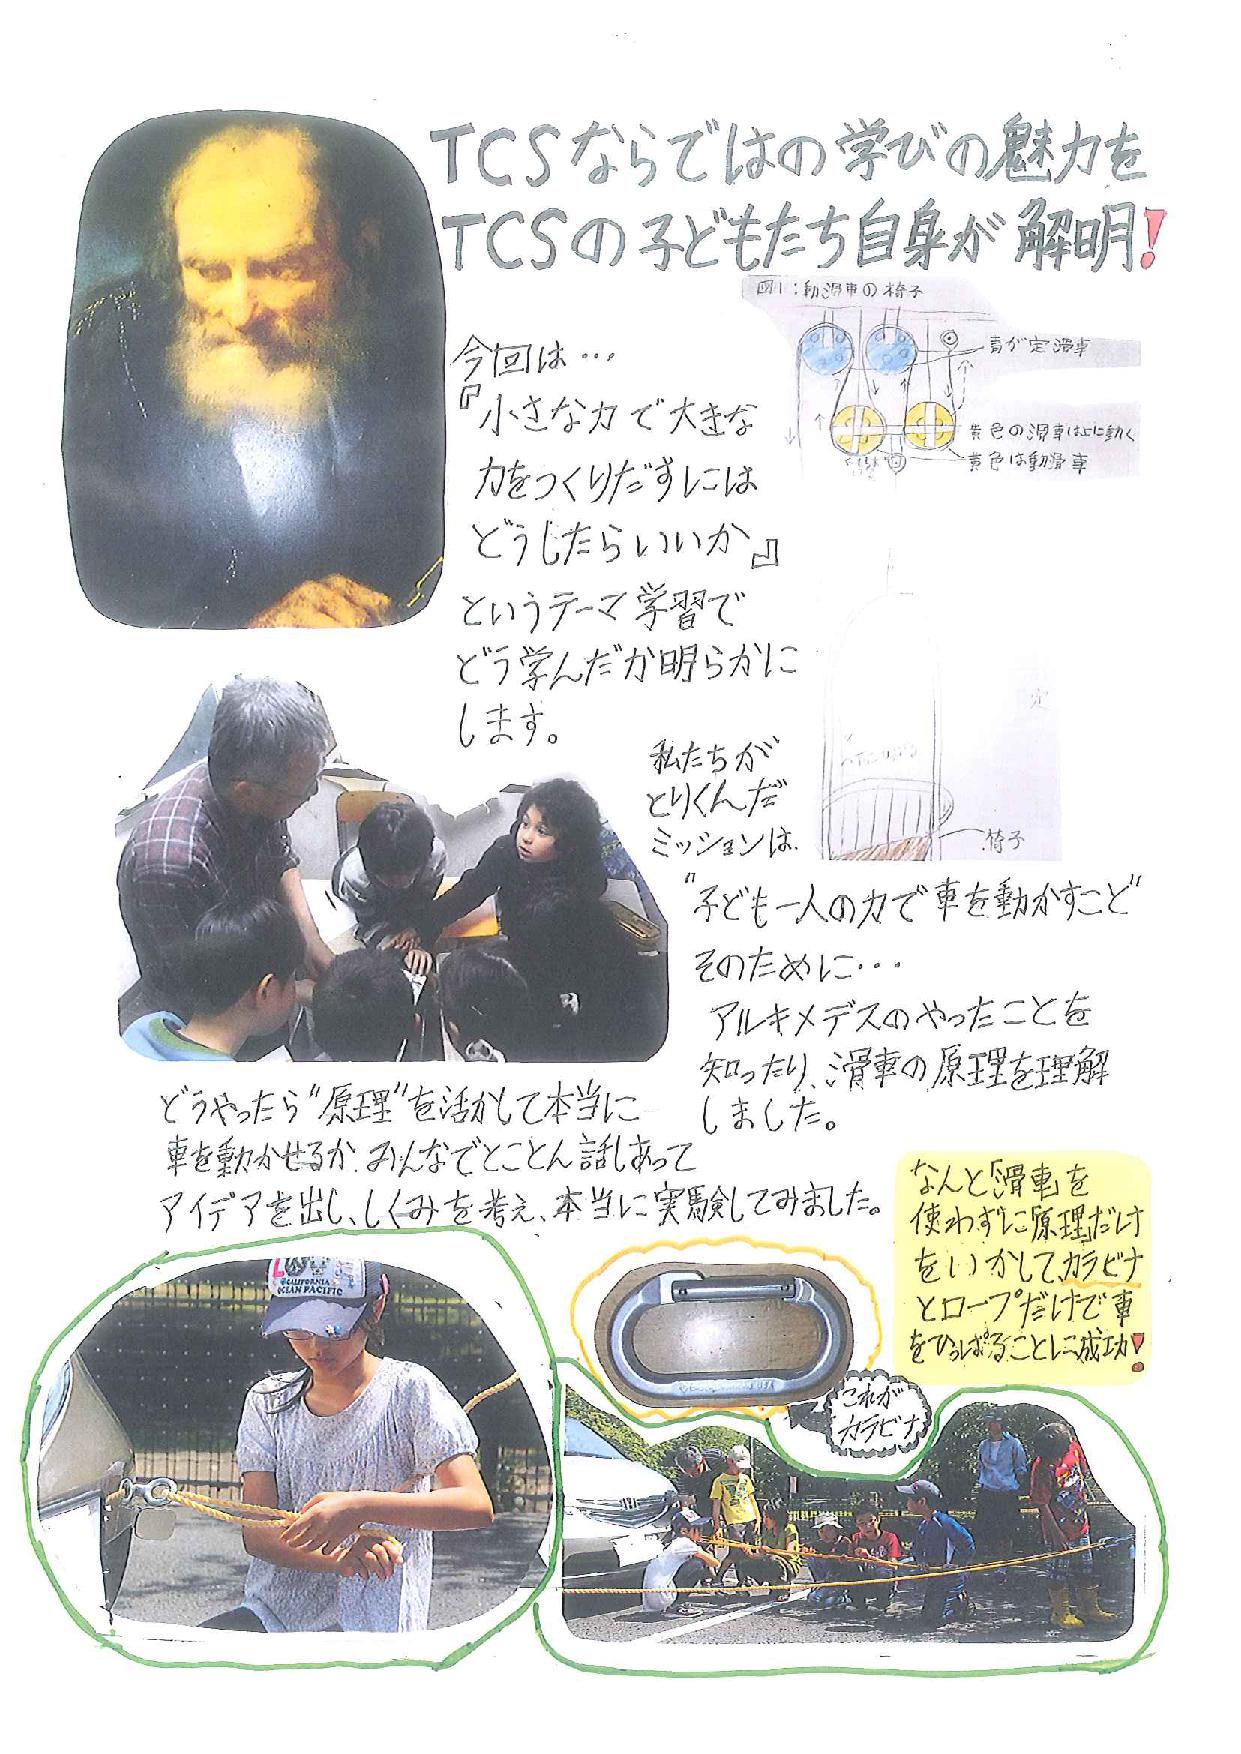 TCSならではの学びの魅力を
TCSの子どもたち自身が解明!
図1:動滑車の椅子
青が定滑車
黄色の滑車は上に動く
黄色は動滑車
今回は…
『小さな力で大きな
力をつくりだすには
どうしたらいいか』
というテーマ学習で
どう学んだか明らかに
します。
定
椅子
私たちが
とりくんだ
ミッションは
"子ども一人の力で車を動かすこと"
そのために…
アルキメデスのやったことを
知ったり、滑車の原理を理解
しました。
どうやったら"原理"を活かして本当に
車を動かせるか、みんなでとことん話しあって
アイデアを出し、しくみを考え、本当に実験してみました。
なんと「滑車」を
使わずに「原理」だけ
をいかして、カラビナ
とロープだけで車
をひっぱることに成功!
これが
カラビナ
CALIFORNIA
OCEAN PACIFIC